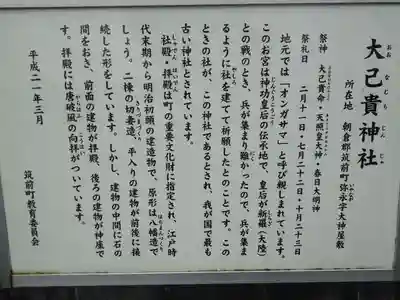 大己貴神社
おおなむちじんじゃ
所在地 朝倉郡筑前町弥永字大神屋敷
祭神 大己貴命・天照皇大神・春日大明神
祭礼日 二月十一日・七月二十二日・十月二十三日
地元では「オンガサマ」と呼び親しまれています。
このお宮は神功皇后の伝承地で、皇后が新羅(大陸)
との戦のとき、兵が集まり難かったので、兵が集ま
るように社を建てて祈願したとのことです。この
ときの社が、この神社であるとされ、我が国で最も
古い神社とされています。
社殿・拝殿は町の重要文化財に指定され、江戸時
代末期から明治初頭の建造物で、原形は八幡造で
しょう。二棟の切妻造、平入りの建物が前後に接
続した形をしています。しかし、建物の中間に石の
間をおき、前面の建物が拝殿、後ろの建物が神座で
す。拝殿には唐破風の向拝がついています。
平成二一年三月
筑前町教育委員会